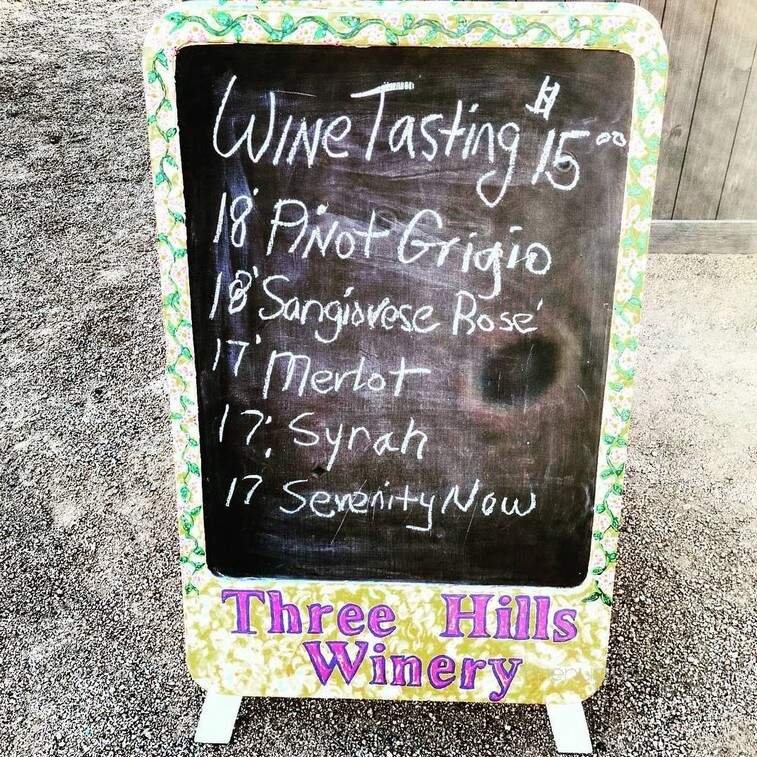 Wine Tasting $15.00
18' Pinot Grigio
18' Sangiovese Rosé
17' Merlot
17' Syrah
17 Serenity Now
Three Hills
Winery